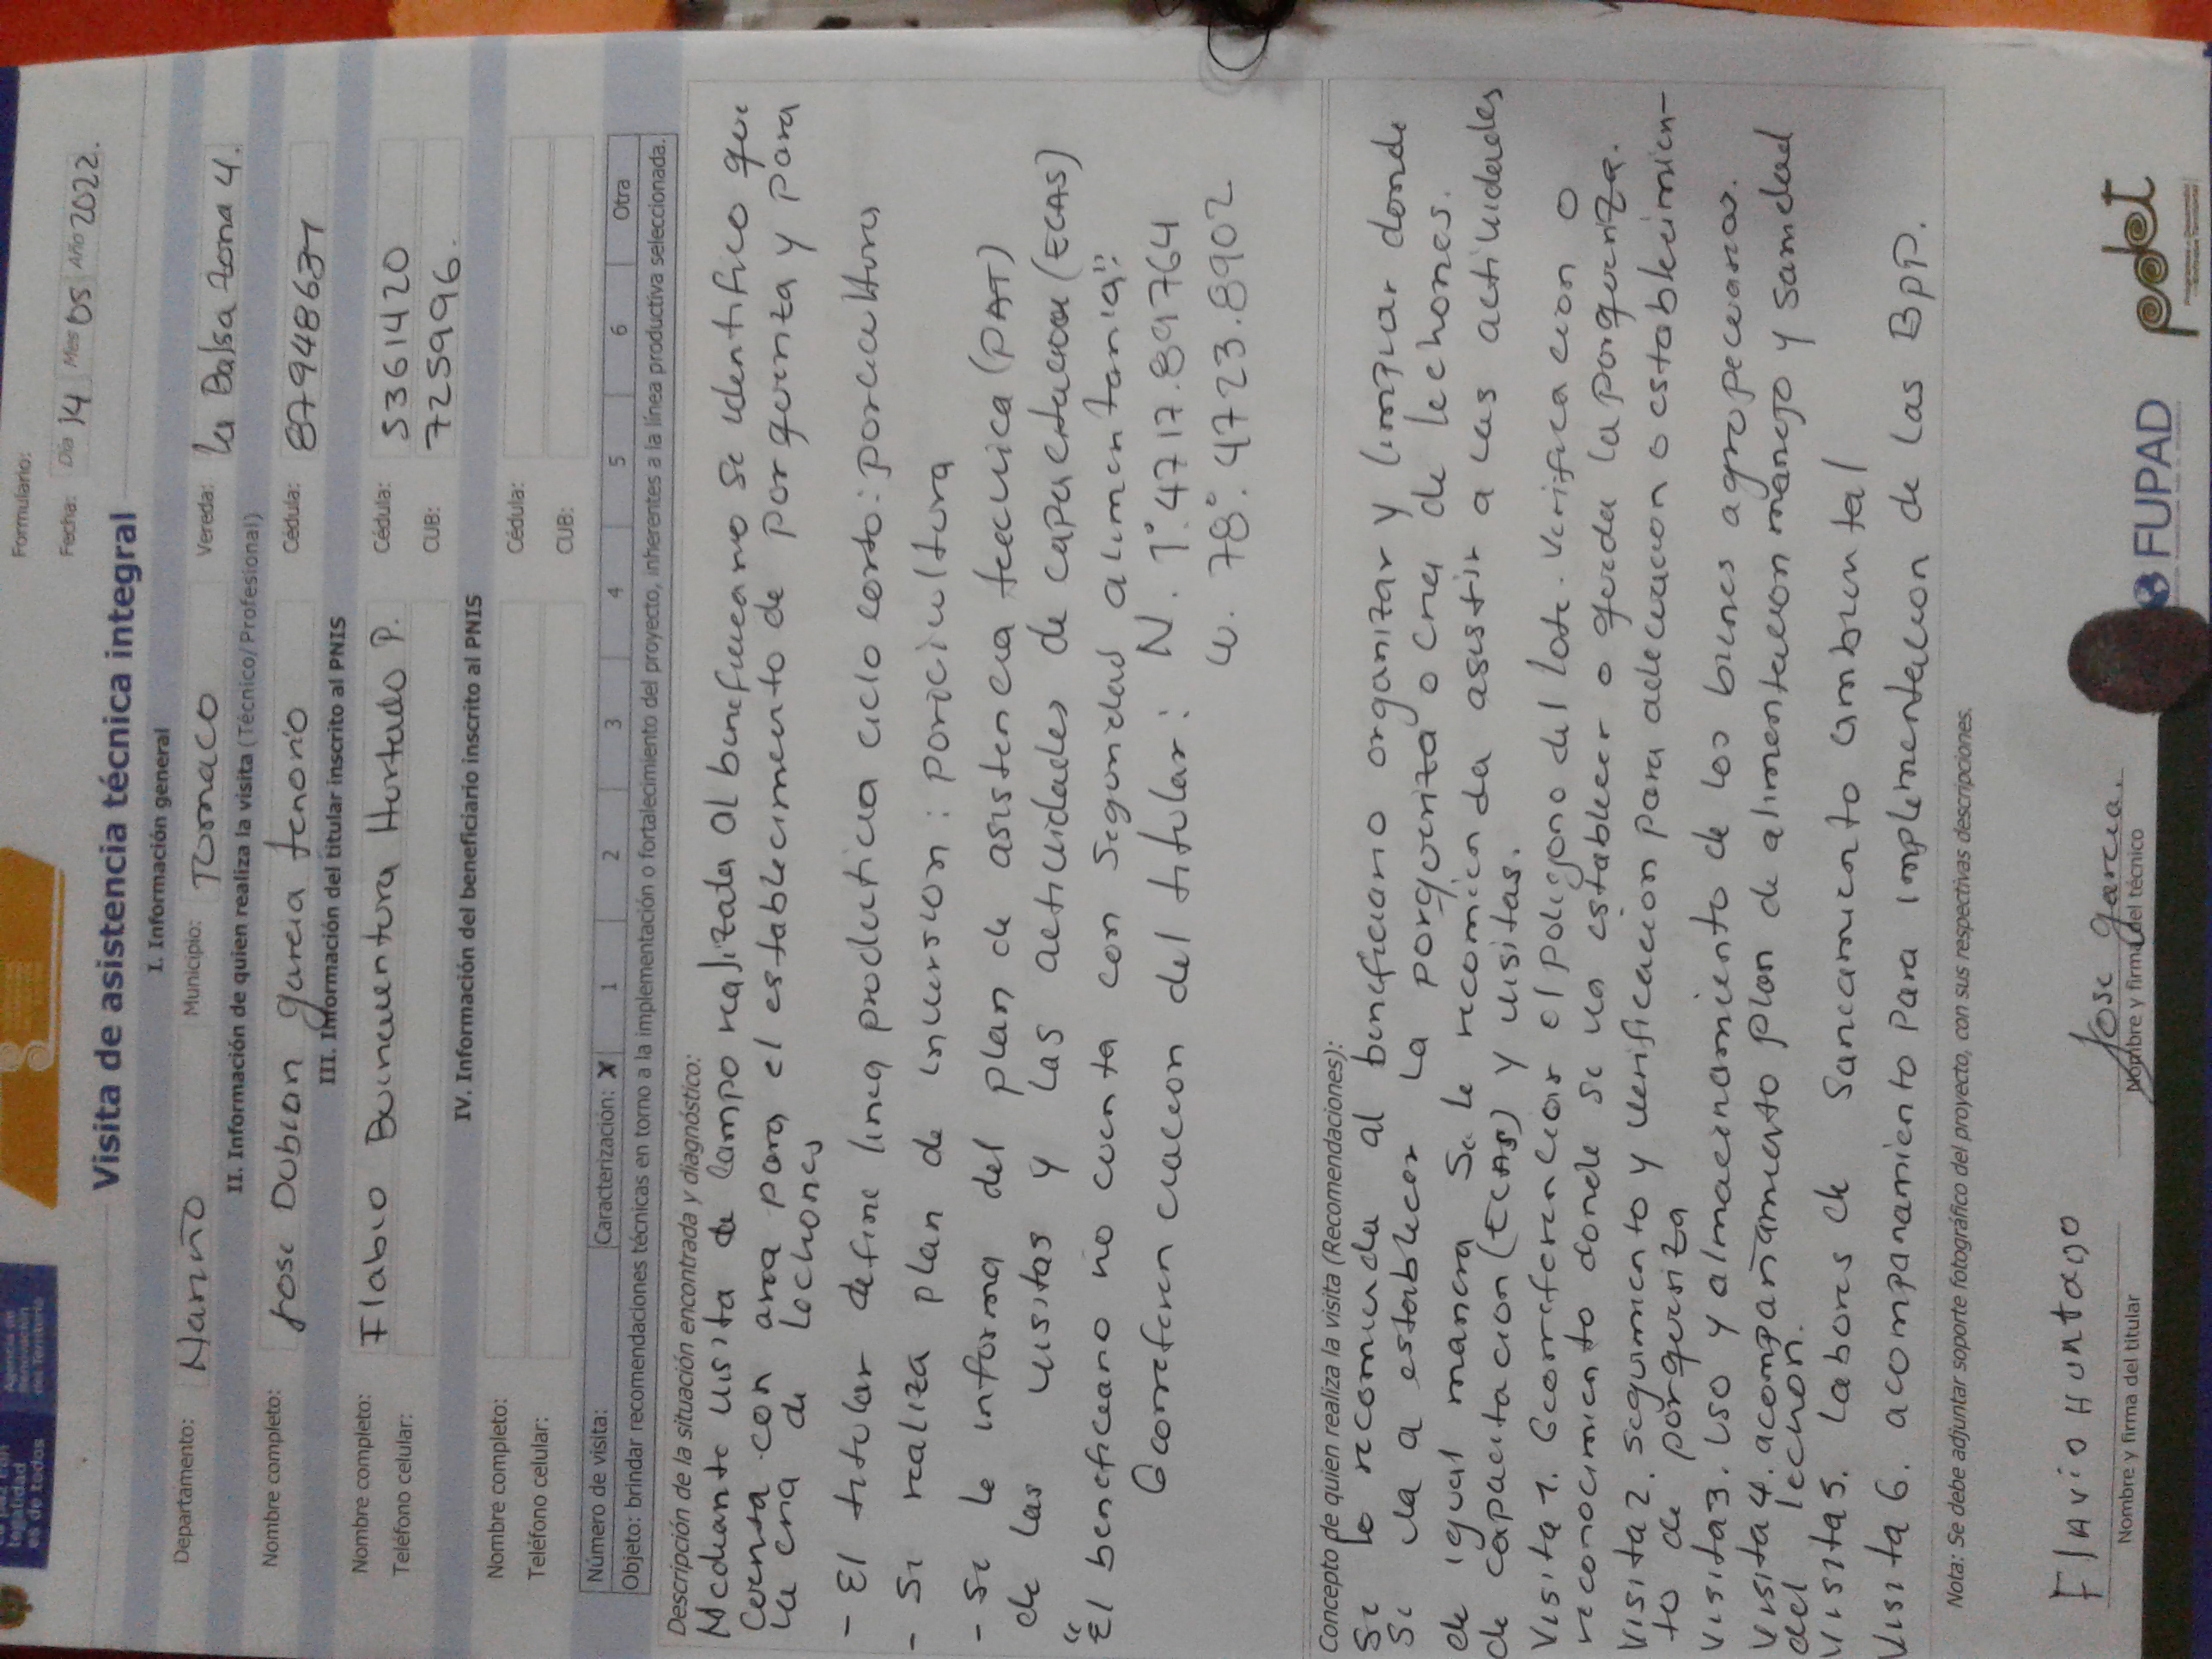 Formulario:
Fecha: Día 14 Mes 05 Año 2022.
Agencia de Renovación del Territorio
es de todos
Visita de asistencia técnica integral
I. Información general
Departamento: Nariño Municipio: Tumaco Vereda: la Balsa zona 4.
II. Información de quien realiza la visita (Técnico/ Profesional)
Nombre completo: Jose Dubian garcia tenorio Cédula: 87948637
III. Información del titular inscrito al PNIS
Nombre completo: Flabio Buenaventura Hurtado P. Cédula: 5361420
Teléfono celular: CUB: 725996.
IV. Información del beneficiario inscrito al PNIS
Nombre completo: Cédula:
Teléfono celular: CUB:
Número de visita: Caracterización: X 1 2 3 4 5 6 Otra
Objeto: brindar recomendaciones técnicas en torno a la implementación o fortalecimiento del proyecto, inherentes a la línea productiva seleccionada.
Descripción de la situación encontrada y diagnóstico:
Mediante visita de campo realizada al beneficiario se identifico que
cuenta con area para el establecimiento de porqueriza y para
la cria de lechones
- El titular define linea productiva ciclo corto: porcicultura
- Se realiza plan de inversion: poricultura
- Se le informa del plan de asistencia tecnica (PAT)
de las visitas y las actividades de capacitacion (ECAS)
"El beneficiario no cuenta con seguridad alimentaria".
Georeferenciacion del titular: N. 1°.4717.89764
W. 78°.4723.8902
Concepto de quien realiza la visita (Recomendaciones):
Se le recomienda al beneficiario organizar y limpiar donde
se va a establecer la porqueriza o cria de lechones.
de igual manera se le recomienda asistir a las actividades
de capacitacion (ECAS) y visitas.
Visita 1. Georreferenciar el poligono del lote. Verificacion o
reconocimiento donde se va establecer o queda la porqueriza.
Visita 2. seguimiento y verificacion para adecuacion o establecimien-
to de porqueriza
Visita 3. uso y almacenamiento de los bienes agropecuarios.
Visita 4. acompañamiento plan de alimentacion manejo y sanidad
del lechon.
Visita 5. labores de saneamiento ambiental
Visita 6. acompanamiento para implementacion de las BPP.
Nota: Se debe adjuntar soporte fotográfico del proyecto, con sus respectivas descripciones.
Flavio Hurtado Jose garcia.
Nombre y firma del titular Nombre y firma del técnico
FUPAD pdet